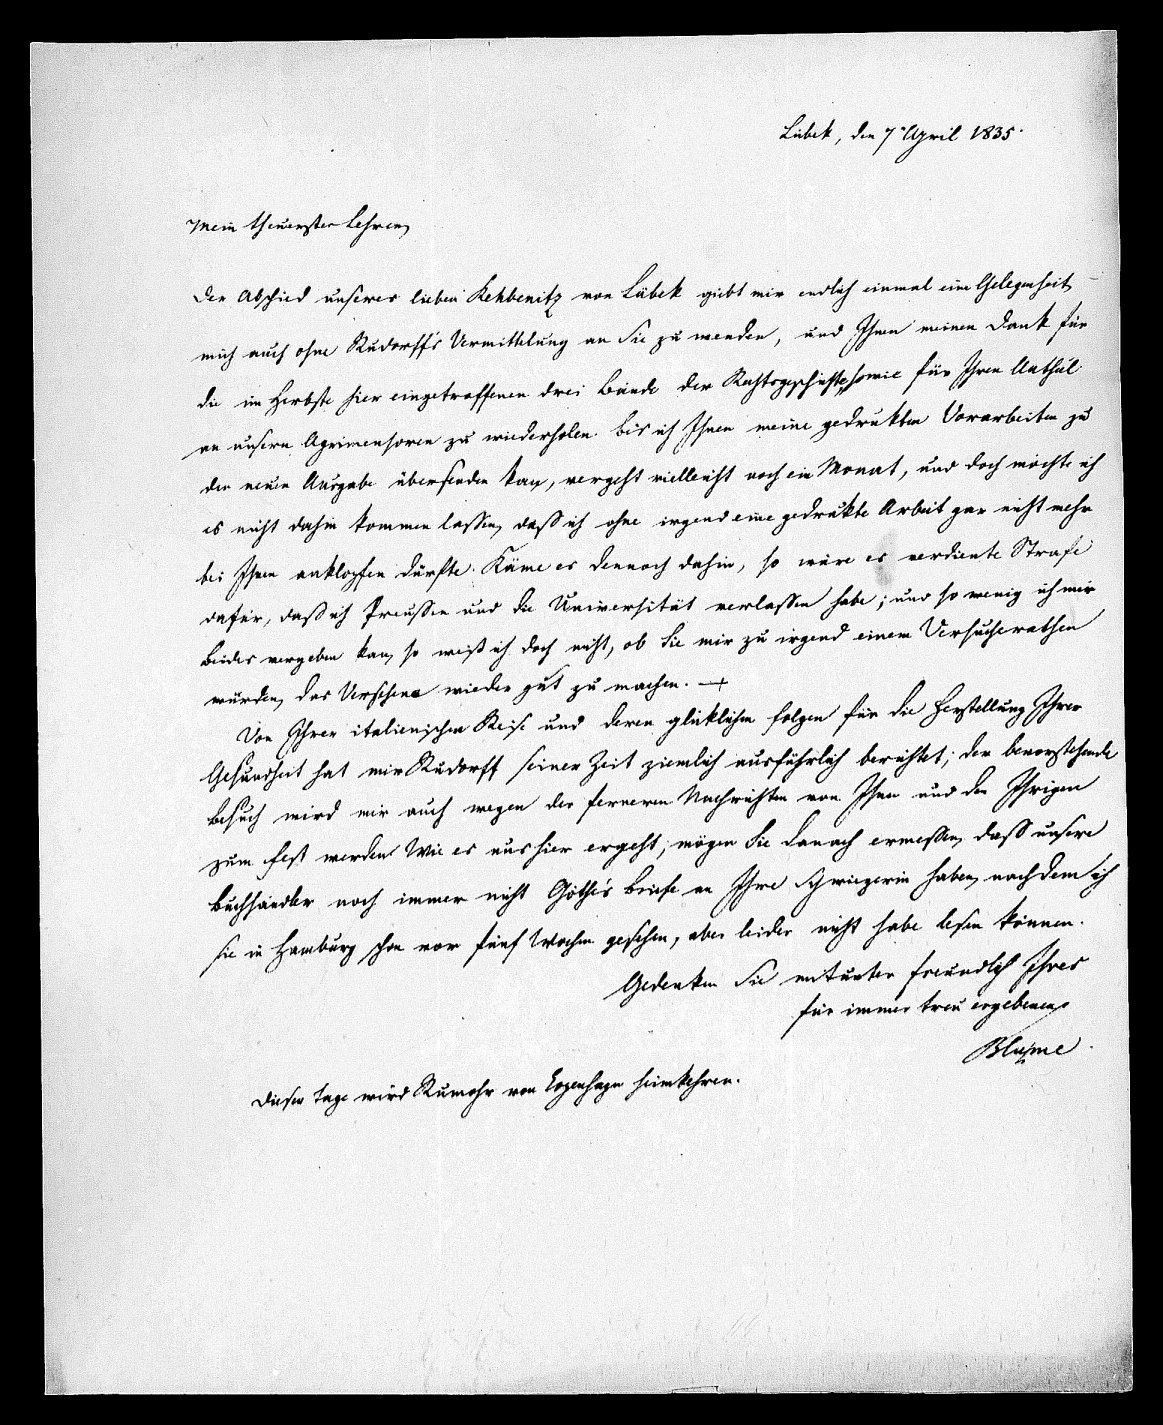 Lübek, den 7. April 1835.
Mein theuerster Lehrer,
Der Abschied unseres lieben Rehbenitz von Lübek giebt mir endlich einmal eine Gelegenheit,
mich auch ohne Rudorff's Vermittelung an Sie zu wenden, und Ihnen meinen Dank für
die im Herbste hier eingetroffenen drei Bände der Rechtsgeschichte, sowie für Ihren Antheil
an unsern Agrimensoren zu wiederholen. Bis ich Ihnen meine gedrukten Vorarbeiten zu
der neuen Ausgabe übersenden kan, vergeht vielleicht noch ein Monat, und doch möchte ich
es nicht dahin kommen lassen, daß ich ohne irgend eine gedrukte Arbeit gar nicht mehr
bei Ihnen anklopfen dürfte. Käme es dennoch dahin, so wäre es verdiente Strafe
dafür, daß ich Preussen und die Universität verlassen habe; und so wenig ich mir
beides vergeben kan, so weiß ich doch nicht, ob Sie mir zu irgend einem Versuche rathen
würden, das Versehene wieder gut zu machen. —
Von Ihrer italienischen Reise und deren glüklichen Folgen für die Herstellung Ihrer
Gesundheit hat mir Rudorff seiner Zeit ziemlich ausführlich berichtet; der bevorstehende
Besuch wird mir auch wegen der ferneren Nachrichten von Ihnen und den Ihrigen
zum Fest werden. Wie es uns hier ergeht, mögen Sie danach ermessen, daß unsere
Buchhändler noch immer nicht Göthe's Briefe an Ihre Schwiegerin haben, nachdem ich
sie in Hamburg schon vor fünf Wochen gesehen, aber leider nicht habe lesen können.
Gedenken Sie mitunter freundlich Ihres
für immer treu ergebenen
Bluhme.
Dieser Tage wird Rumohr von Copenhagen heimkehren.